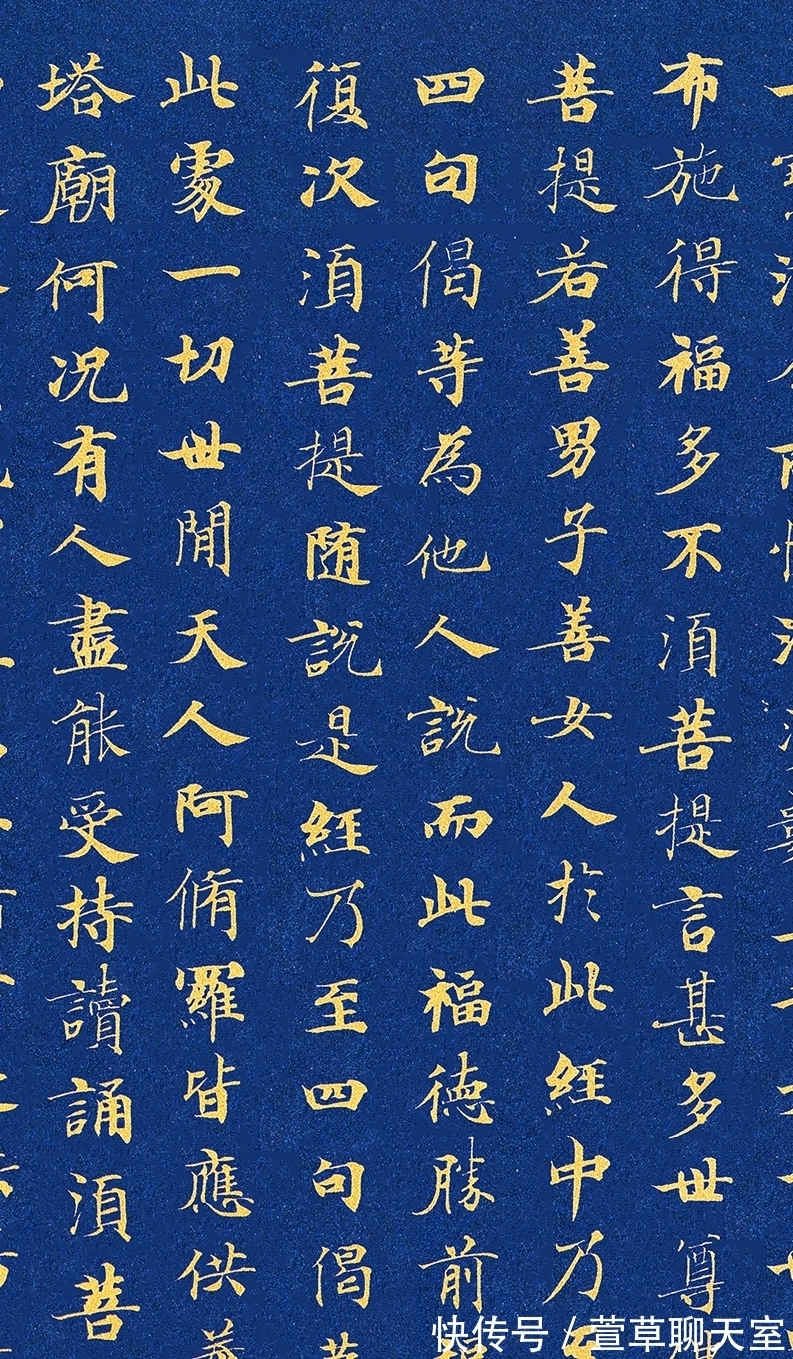 布施得福多不湏菩提言甚多世尊
菩提若善男子善女人於此經中乃
四句偈等為他人說而此福德勝前
復次湏菩提随說是經乃至四句偈等
此處一切世閒天人阿脩羅皆應供養
塔廟何况有人盡能受持讀誦湏菩
快传号 / 萱草聊天室